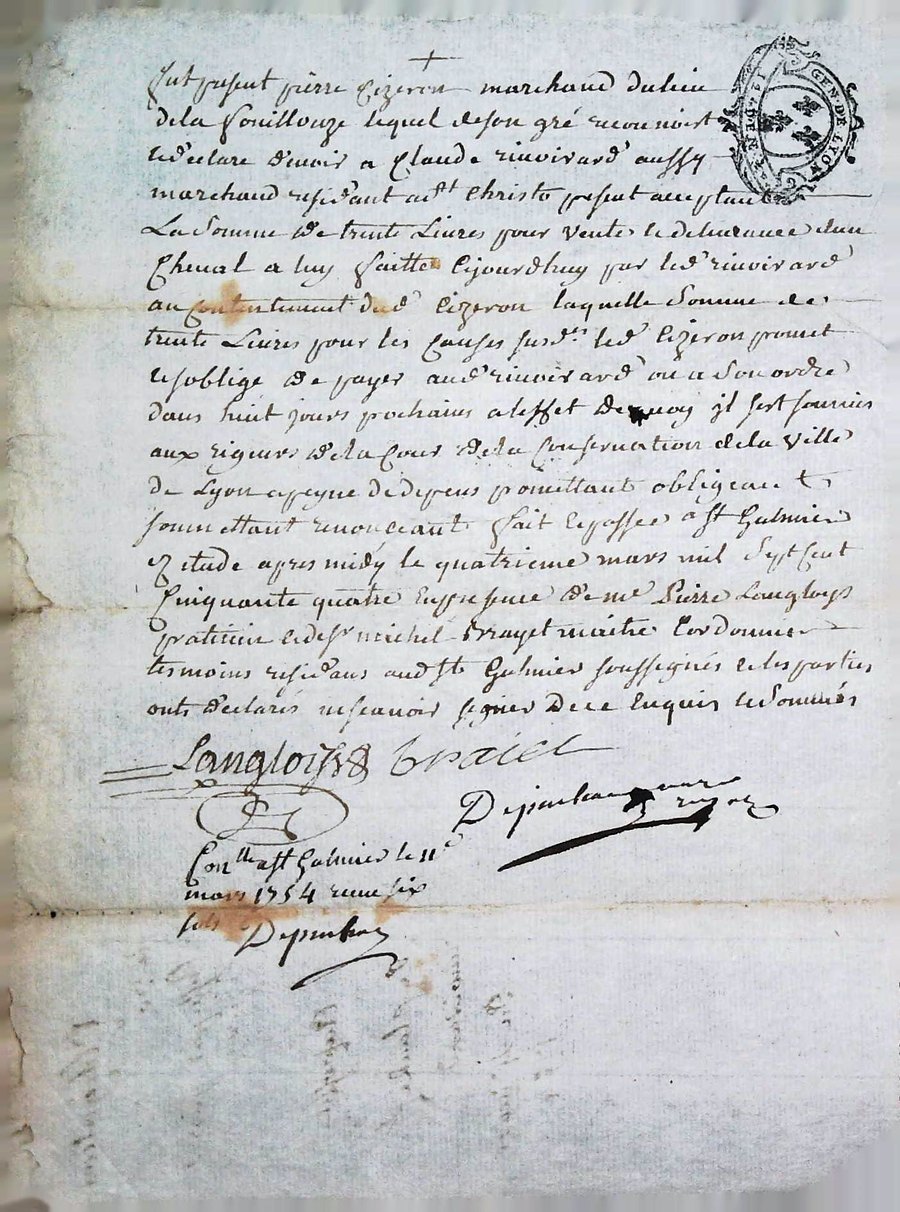 GEN. DE LYON
fut present pierre Cizeron marchand du lieu
de la fouillouze lequel de son gré reconnoist
et declare devoir a Claude rinvirard aussy
marchand residant a St Christo present acceptant
La somme de trente Livres pour vente et delivrance d'un
Cheval a luy faitte cejourdhuy par led rinvirard
au contentement dud Cizeron laquelle somme de
trente Livres pour les Causes susd. led Cizeron promet
et soblige de payer aud rinvirard ou a son ordre
dans huit jours prochains a leffet de quoy il sest soumis
aux rigueurs de la Cour de la Conservation de la ville
de Lyon a peyne de depens promettant obligeant
soumettant renonceant fait et passé a St Galmier
etude apres midy le quatrieme mars mil sept cent
Cinquante quatre en presence de me Pierre Langloys
praticien et de sr michel brayet maitre Cordonnier
tesmoins residans aud St Galmier soussignés et les parties
onts declarés ne scavoir signer de ce Enquis et sommés
Langlois braiet
Conlle a St Galmier le 11e
mars 1754 receu six
sols